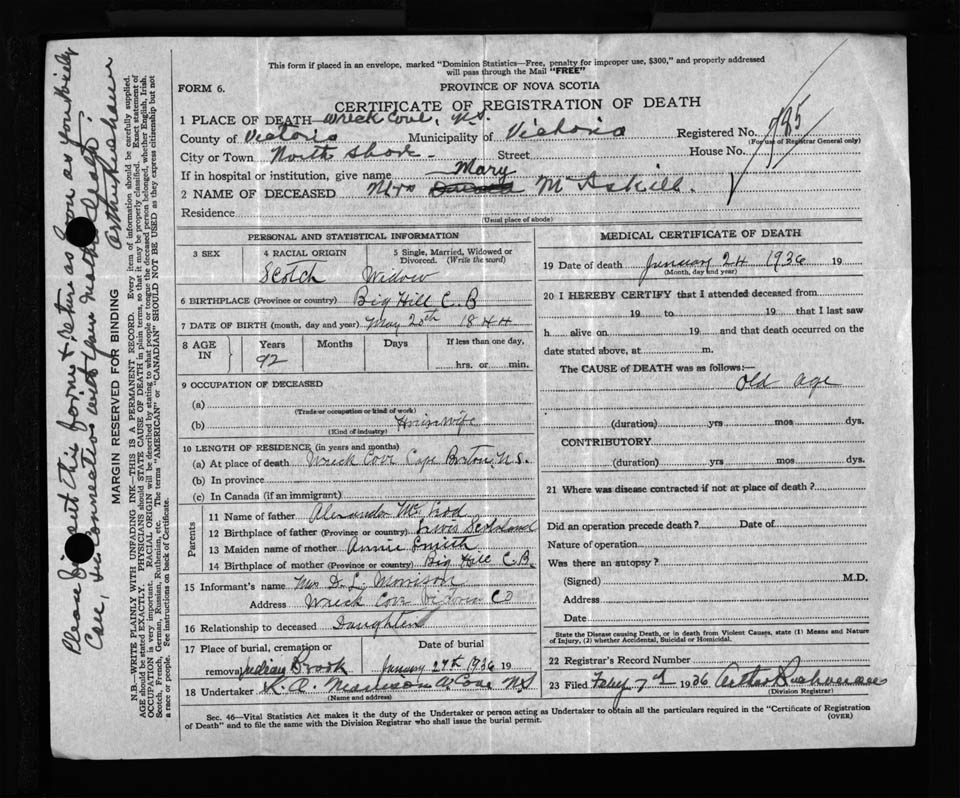 This form if placed in an envelope, marked "Dominion Statistics—Free, penalty for improper use, $300," and properly addressed
will pass through the Mail "FREE"
FORM 6.
PROVINCE OF NOVA SCOTIA
CERTIFICATE OF REGISTRATION OF DEATH
1 PLACE OF DEATH Wreck Cove, N.S.
County of Victoria Municipality of Victoria Registered No. 785
(For use of Registrar General only)
City or Town North Shore Street House No.
If in hospital or institution, give name
Mary
2 NAME OF DECEASED Mrs McAskill.
Residence
(Usual place of abode)
PERSONAL AND STATISTICAL INFORMATION
3 SEX 4 RACIAL ORIGIN 5 Single, Married, Widowed or
Divorced. (Write the word)
Scotch Widow
6 BIRTHPLACE (Province or country) Big Hill C.B
7 DATE OF BIRTH (month, day and year) May 20th 1844
8 AGE IN Years Months Days If less than one day,
92 hrs. or min.
9 OCCUPATION OF DECEASED
(a)
(Trade or occupation or kind of work)
(b) Housewife
(Kind of industry)
10 LENGTH OF RESIDENCE (in years and months)
(a) At place of death Wreck Cove Cape Breton N.S.
(b) In province
(c) In Canada (if an immigrant)
Parents
11 Name of father Alexander McLeod
12 Birthplace of father (Province or country) Lewis Scotland
13 Maiden name of mother Annie Smith
14 Birthplace of mother (Province or country) Big Hill C.B.
15 Informant's name Mrs D. L. Morrison
Address Wreck Cove Victoria Co
16 Relationship to deceased Daughter
17 Place of burial, cremation or Date of burial
removal Indian Brook January 27th 1936 19
18 Undertaker K. A. Morrison W. Cove NS
(Name and address)
MEDICAL CERTIFICATE OF DEATH
19 Date of death January 24 1936 19
(Month, day and year)
20 I HEREBY CERTIFY that I attended deceased from
19 to 19 that I last saw
h alive on 19 and that death occurred on the
date stated above, at m.
The CAUSE of DEATH was as follows:—
Old age
(duration) yrs mos dys.
CONTRIBUTORY
(duration) yrs mos dys.
21 Where was disease contracted if not at place of death?
Did an operation precede death? Date of
Nature of operation
Was there an autopsy?
(Signed) M.D.
Address
Date
State the Disease causing Death, or in death from Violent Causes, state (1) Means and Nature
of Injury, (2) whether Accidental, Suicidal or Homicidal.
22 Registrar's Record Number
23 Filed Feby 7th 1936 Arthur
(Division Registrar)
Sec. 46—Vital Statistics Act makes it the duty of the Undertaker or person acting as Undertaker to obtain all the particulars required in the "Certificate of Registration
of Death" and to file the same with the Division Registrar who shall issue the burial permit.
(OVER)
Please insert this form & return as soon as you likely
Can, in connection with your mother's death.
Arthur
MARGIN RESERVED FOR BINDING
N.B.—WRITE PLAINLY WITH UNFADING INK—THIS IS A PERMANENT RECORD. Every item of information should be carefully supplied.
AGE should be stated EXACTLY. PHYSICIANS should STATE CAUSE OF DEATH in plain terms, so that it may be properly classified. Exact statement of
OCCUPATION is very important. RACIAL ORIGIN will be described by stating to what people or tongue the deceased person belonged, whether English, Irish,
Scotch, French, German, Russian, Ruthenian, etc. The terms "AMERICAN" or "CANADIAN" SHOULD NOT BE USED as they express citizenship but not
a race or people. See instructions on back of Certificate.